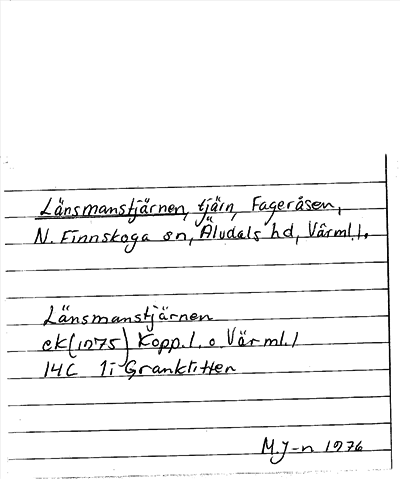 Länsmanstjärnen, tjärn, Fageråsen,
N. Finnskoga sn, Älvdals hd, Värml.l.
Länsmanstjärnen
ek (1975) Kopp.l. o Värml.l
14C 1i Granktitten
M.J-n 1976